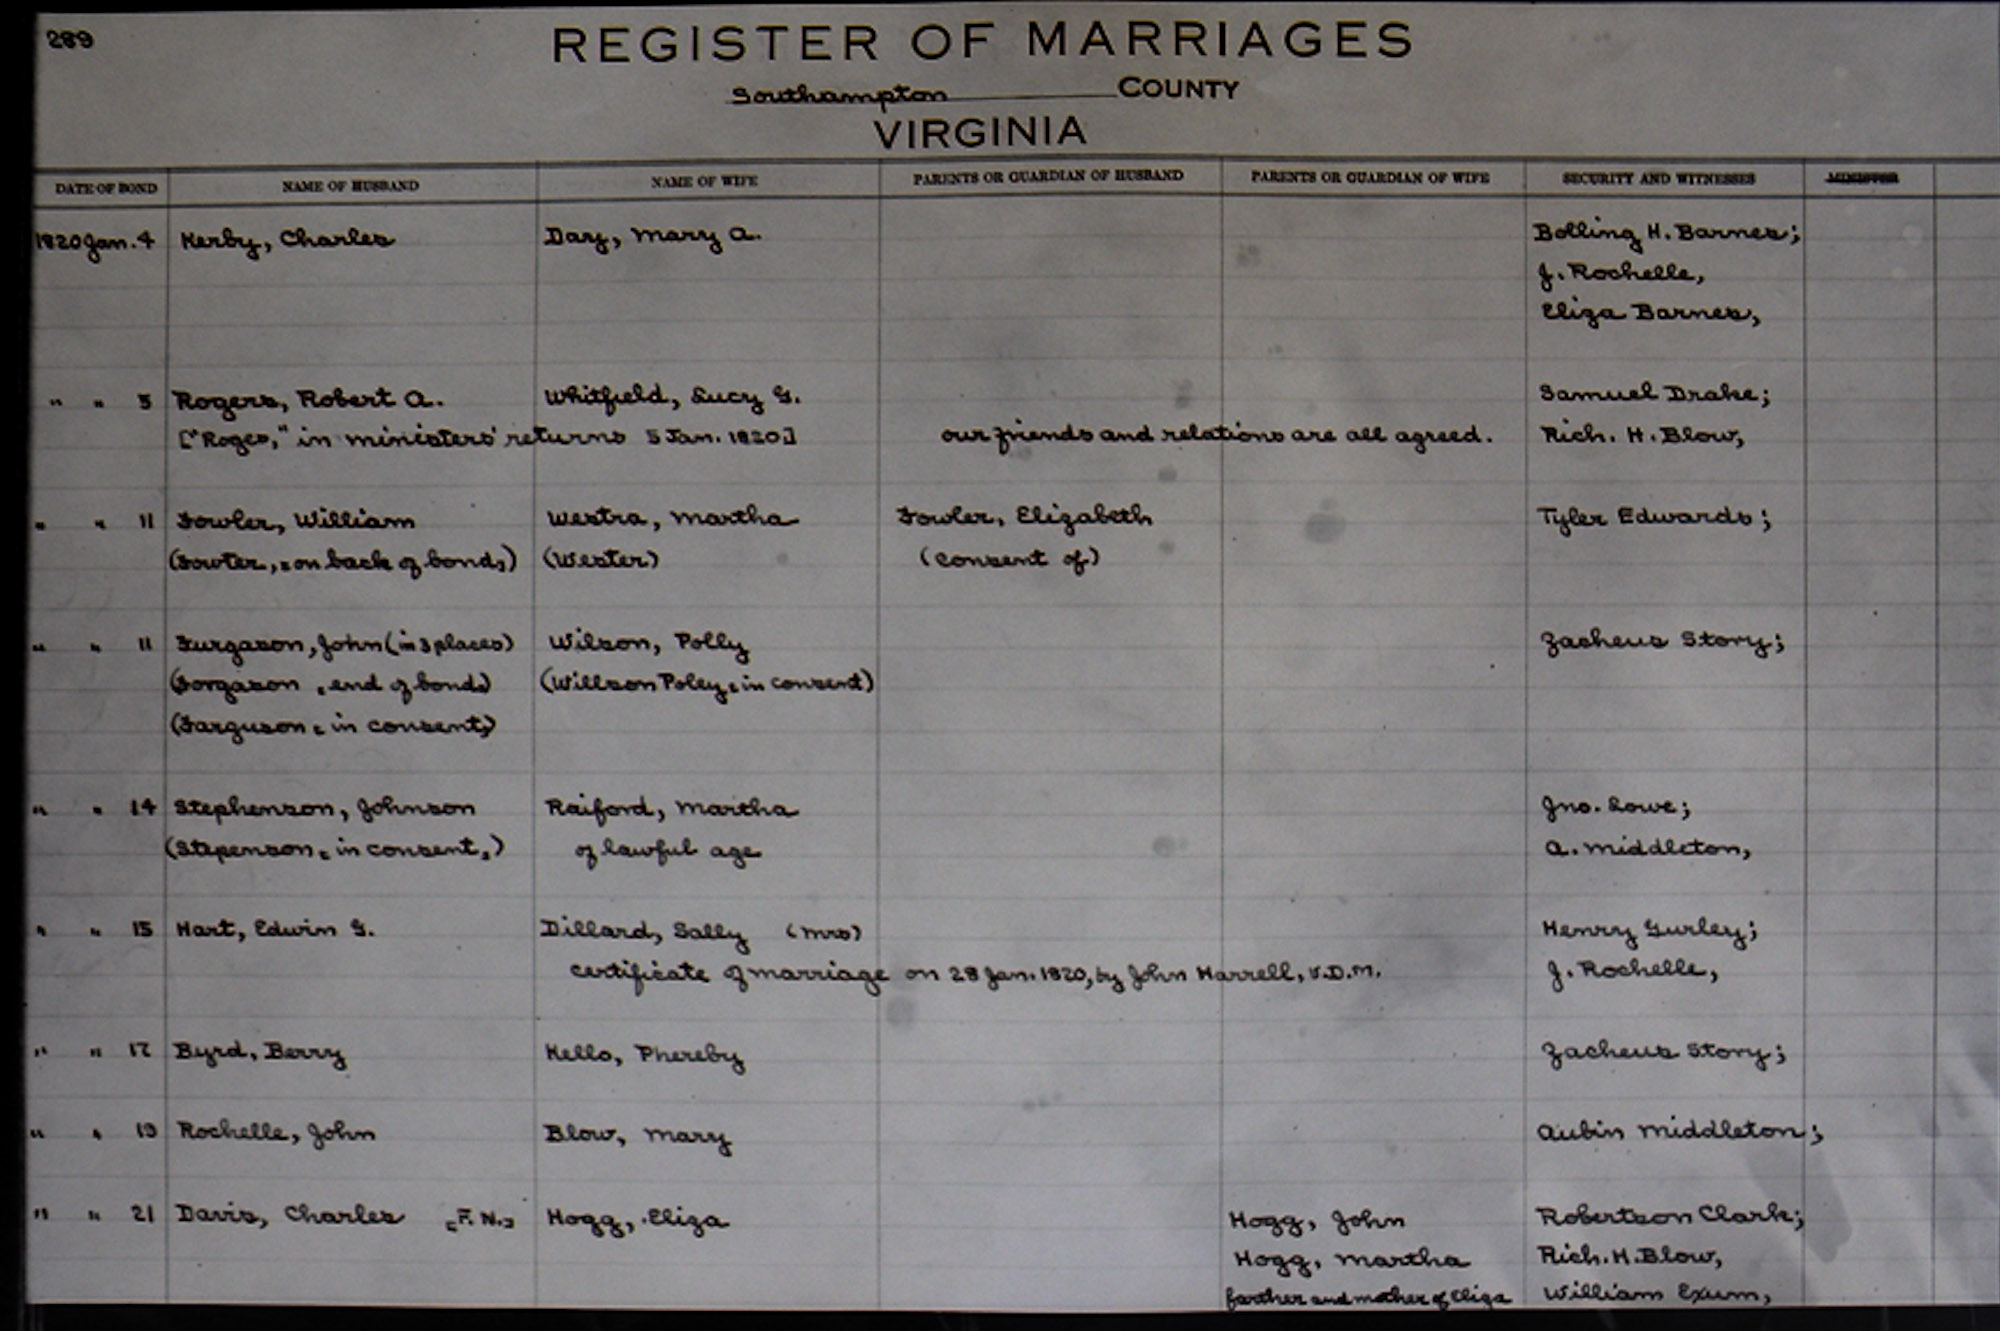 289
REGISTER OF MARRIAGES
Southampton COUNTY
VIRGINIA
DATE OF BOND NAME OF HUSBAND NAME OF WIFE PARENTS OR GUARDIAN OF HUSBAND PARENTS OR GUARDIAN OF WIFE SECURITY AND WITNESSES MINISTER
1820 Jan. 4 Kerby, Charles Day, Mary A. Bolling H. Barnes;
J. Rochelle,
Eliza Barnes,
" " 5 Rogers, Robert A. Whitfield, Lucy G. Samuel Drake;
["Roges," in ministers' returns 5 Jan. 1820] our friends and relations are all agreed. Rich. H. Blow,
" " 11 Fowler, William Westra, Martha Fowler, Elizabeth Tyler Edwards;
(Fowter, on back of bond,) (Wester) (consent of)
" " 11 Furgason, John (in 3 places) Wilson, Polly Zacheus Story;
(Forgason, end of bond) (Willson Poley, in consent)
(Farguson, in consent,)
" " 14 Stephenson, Johnson Raiford, Martha Jno. Lowe;
(Stepenson, in consent,) of lawful age A. Middleton,
" " 15 Hart, Edwin G. Dillard, Sally (Mrs) Henry Gurley;
certificate of marriage on 28 Jan. 1820, by John Harrell, V.D.M. J. Rochelle,
" " 17 Byrd, Berry Kello, Phereby Zacheus Story;
" " 19 Rochelle, John Blow, Mary Aubin Middleton;
" " 21 Davis, Charles [F. N.] Hogg, Eliza Hogg, John Robertson Clark;
Hogg, Martha Rich. H. Blow,
farther and mother of Eliza William Exum,